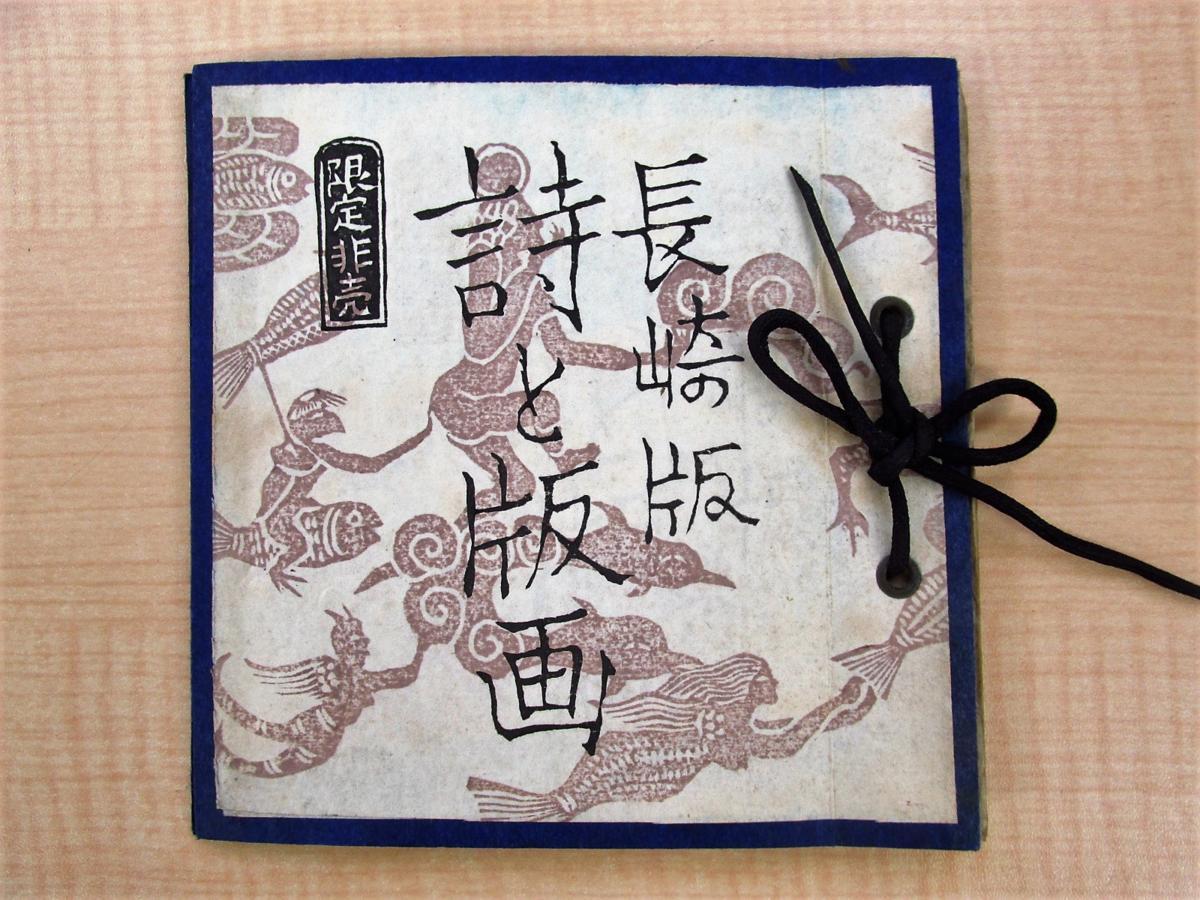 長崎の版
詩と版画
限定非売